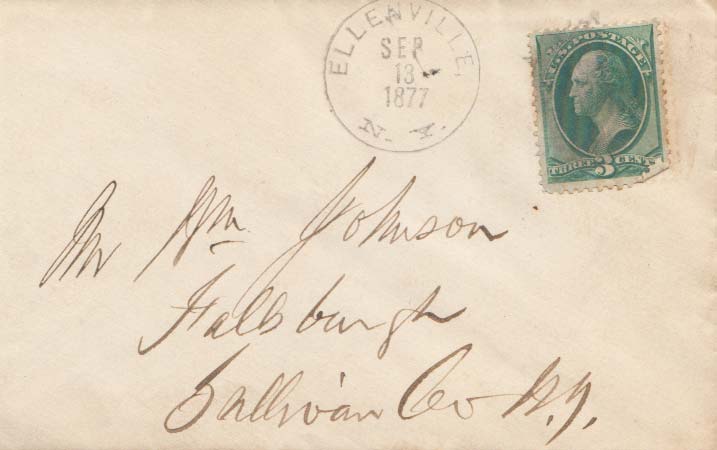 ELLENVILLE,
SEP
13
1877
N. Y.
U.S. POSTAGE
THREE 3 CENTS
Mr Wm. Johnson
Fallsburgh
Sullivan Co N.Y.